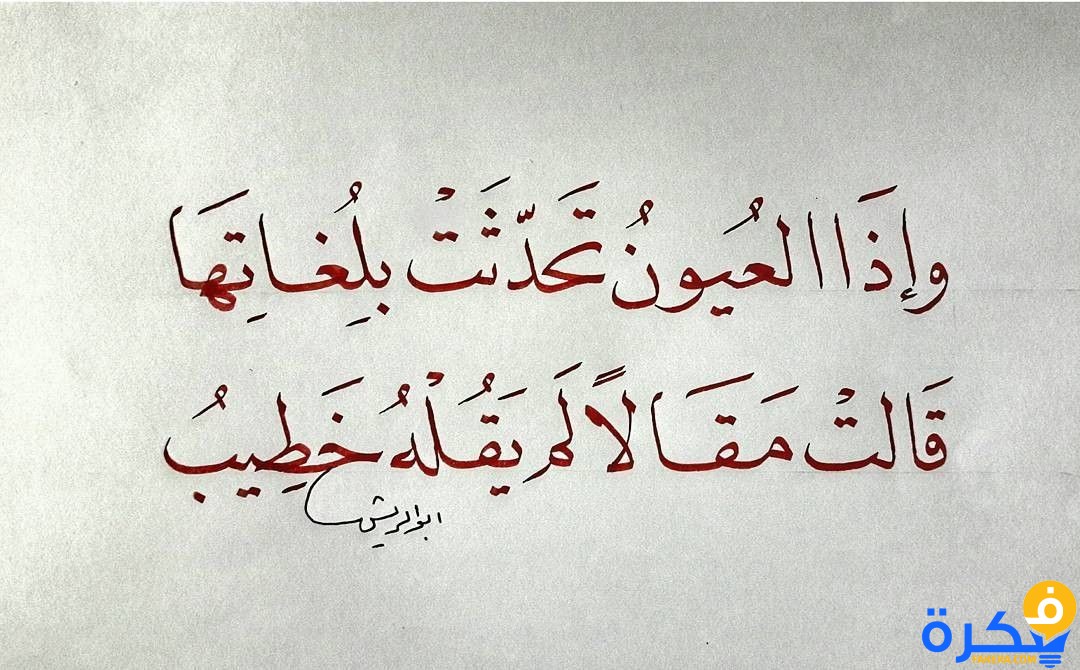 وإِذَا العُيونُ تَحَدّثَتْ بِلُغاتِهَا
قَالتْ مَقَالاً لَم يَقُلْهُ خَطِيبُ
ابوالريش
فكرة